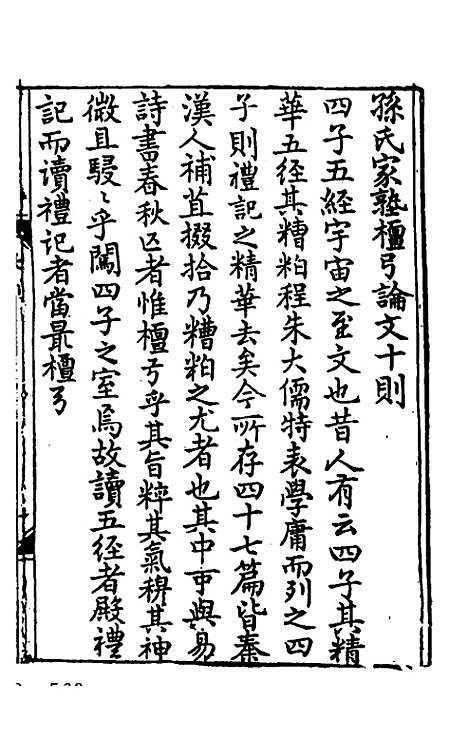 孫氏家塾檀弓論文十則
四子五經宇宙之至文也昔人有云四子其精
華五經其糟粕程朱大儒特表學庸而列之四
子則禮記之精華去矣今所存四十七篇皆秦
漢人補苴掇拾乃糟粕之尤者也其中可與易
詩書春秋匹者惟檀弓乎其旨粹其氣穆其神
微且駸〻乎闖四子之室焉故讀五經者殿禮
記而讀禮記者當最檀弓